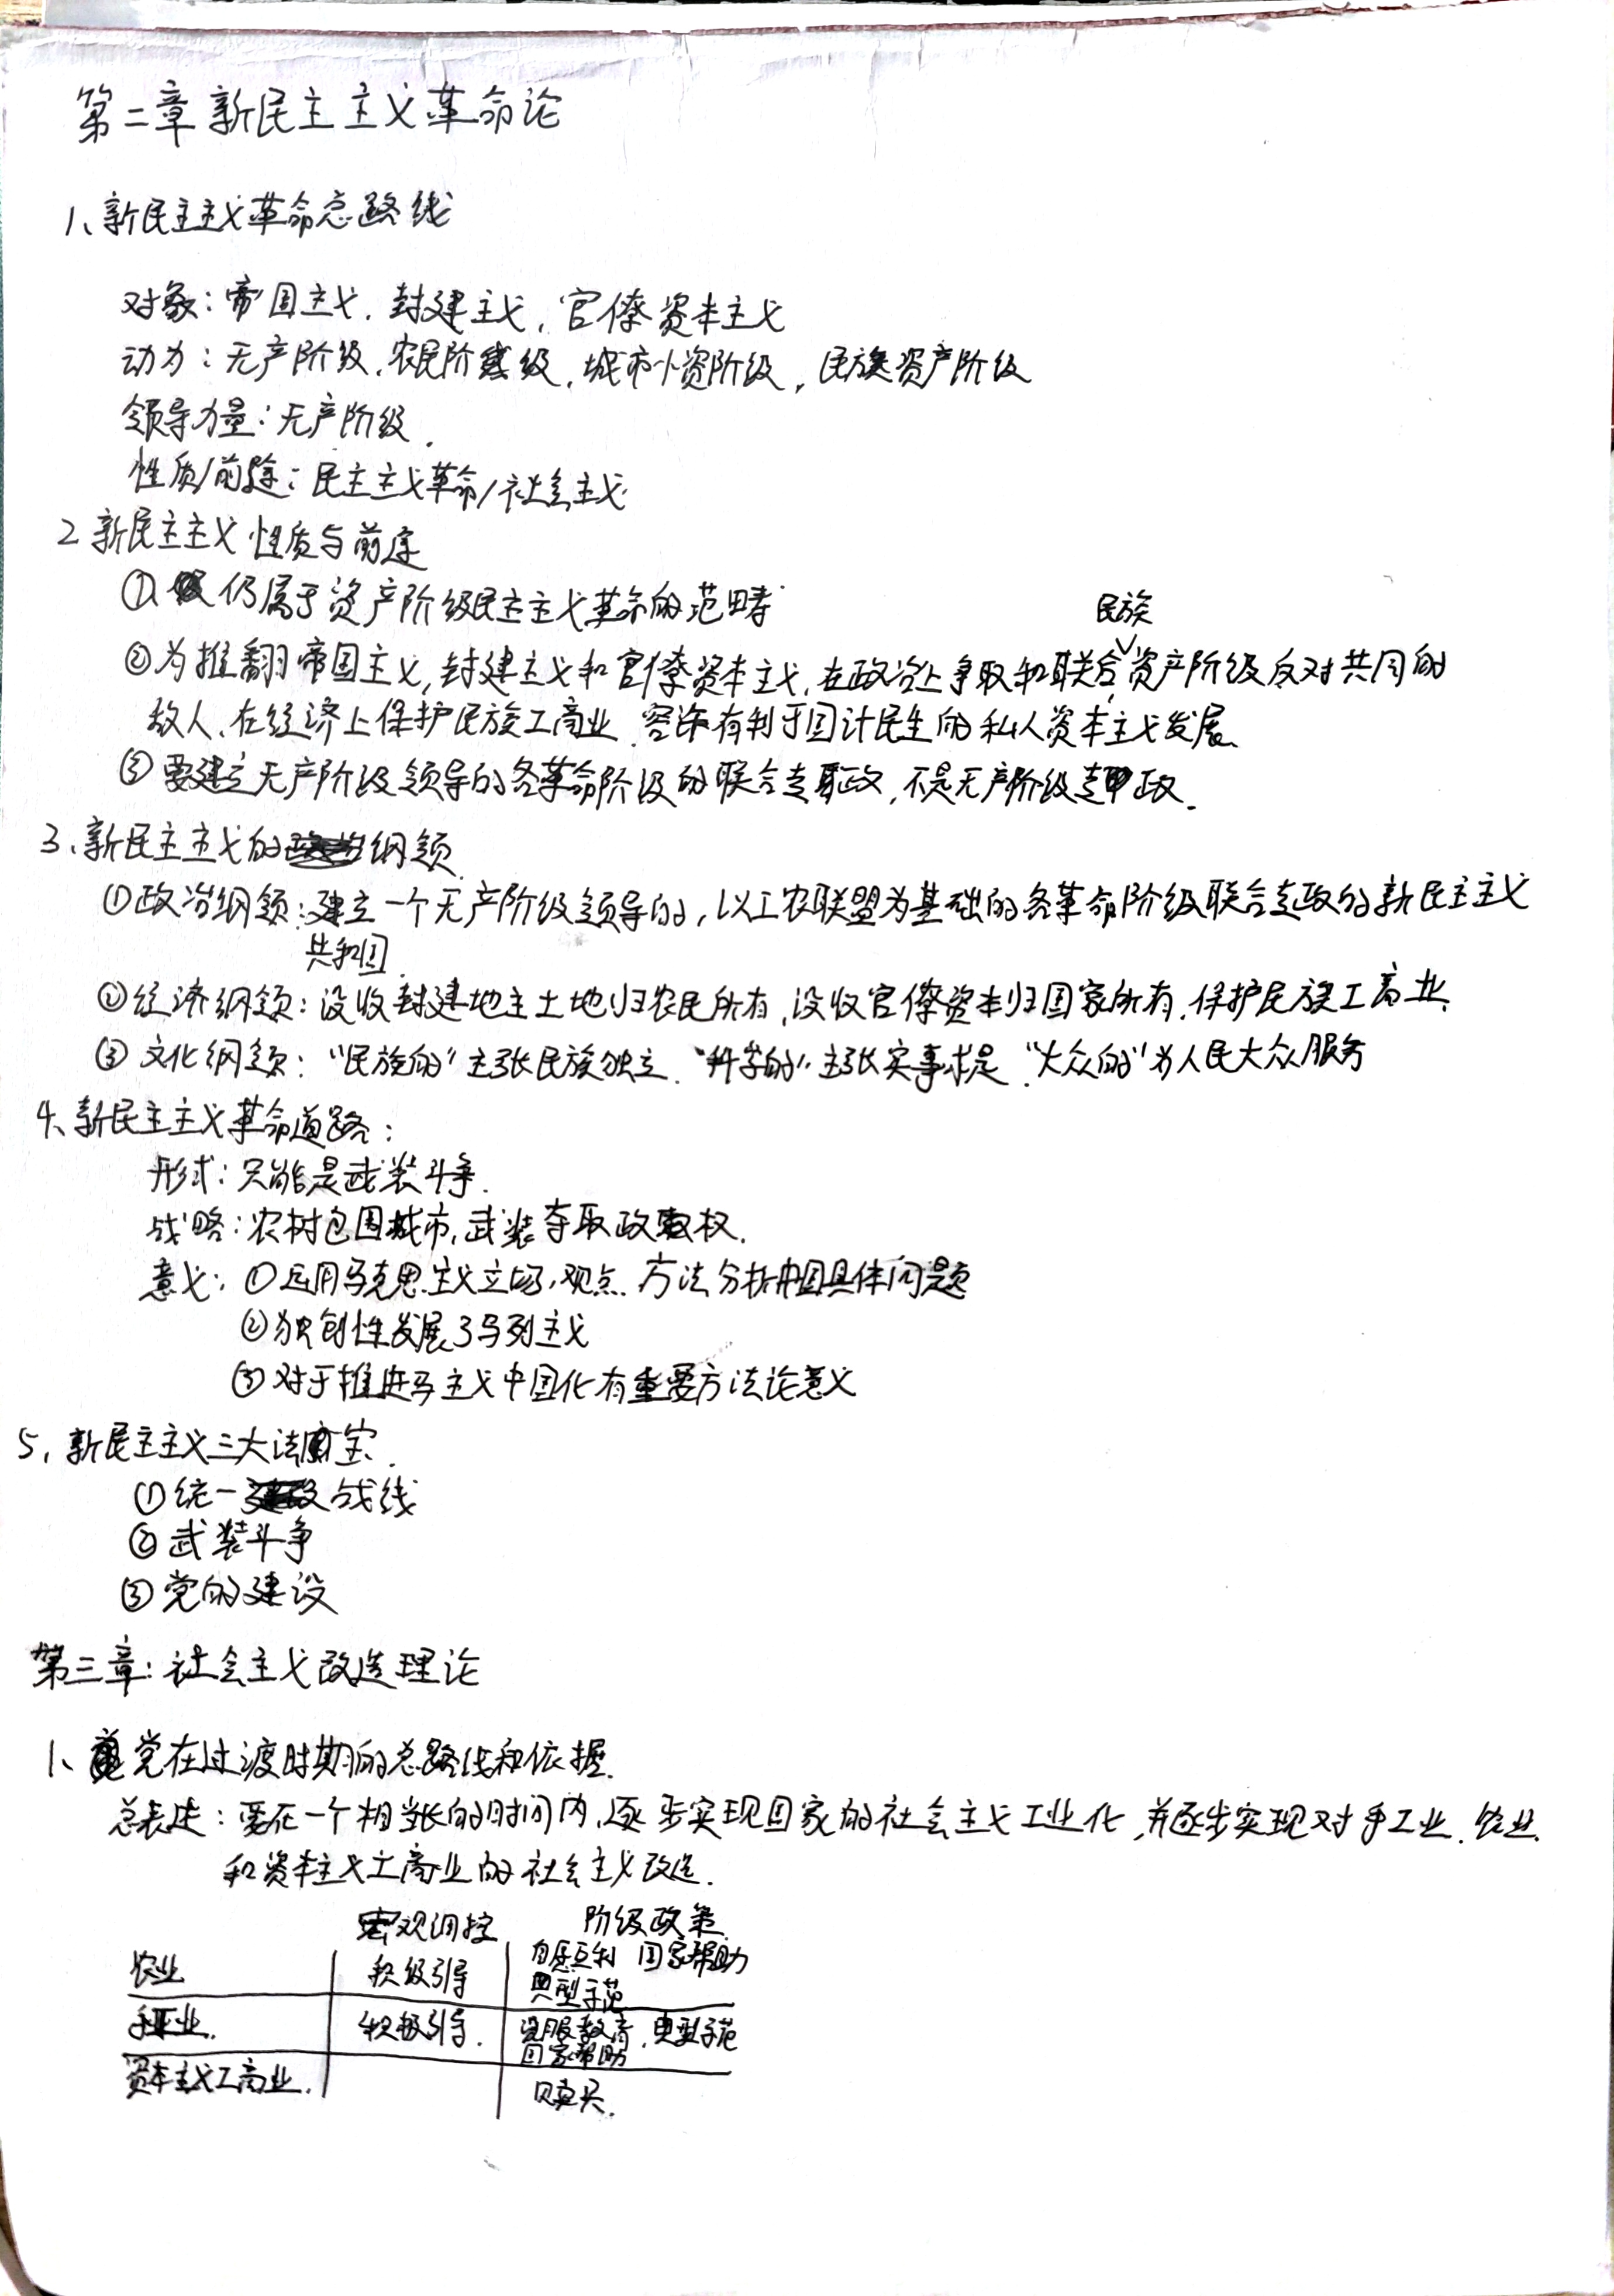 第二章 新民主主义革命论
1、新民主主义革命总路线
对象：帝国主义、封建主义，官僚资本主义
动力：无产阶级、农民阶级，城市小资阶级，民族资产阶级
领导力量：无产阶级.
性质/前途：民主主义革命/社会主义
2 新民主主义性质与前途
① 仍属于资产阶级民主主义革命的范畴
②为推翻帝国主义，封建主义和官僚资本主义，在政治上争取和联合民族资产阶级反对共同的
敌人、在经济上保护民族工商业、容许有利于国计民生的私人资本主义发展、
③要建立无产阶级领导的各革命阶级的联合专政，不是无产阶级专政.
3、新民主主义的纲领
①政治纲领：建立一个无产阶级领导的，以工农联盟为基础的各革命阶级联合专政的新民主主义
共和国.
②经济纲领：没收封建地主土地归农民所有，没收官僚资本归国家所有、保护民族工商业、
③文化纲领：“民族的”主张民族独立、“科学的”主张实事求是、“大众的”为人民大众服务
4、新民主主义革命道路：
形式：只能是武装斗争.
战略：农村包围城市，武装夺取政权.
意义：①运用马克思主义立场、观点、方法分析中国具体问题
②独创性发展了马列主义
③对于推进马主义中国化有重要方法论意义
5，新民主主义三大法宝.
①统一战线
②武装斗争
③党的建设
第三章：社会主义改造理论
1、党在过渡时期的总路线和依据.
总表述：要在一个相当长的时间内，逐步实现国家的社会主义工业化，并逐步实现对手工业、农业、
和资本主义工商业的社会主义改造.
宏观调控 阶级政策
农业 积极引导 自愿互利 国家帮助
典型示范
手工业. 积极引导. 说服教育、典型示范
国家帮助
资本主义工商业. 赎买.